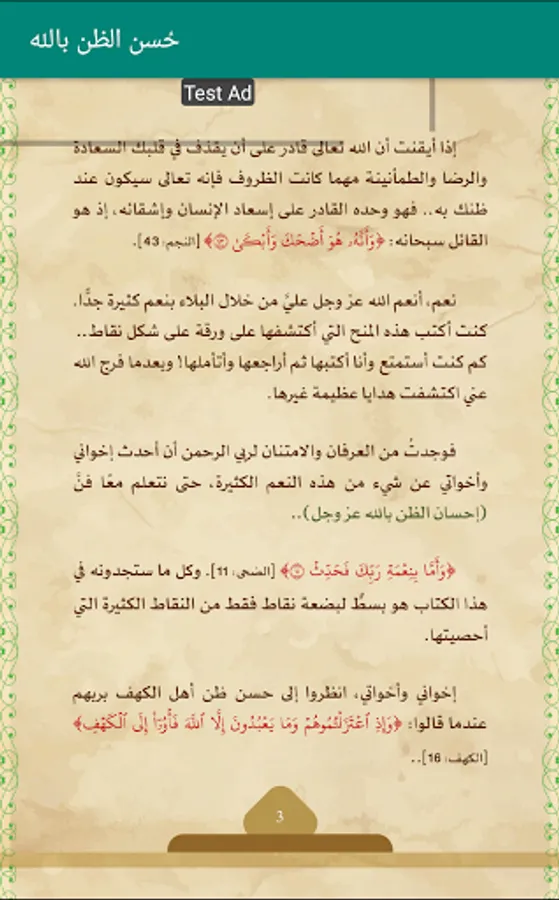 حُسن الظن بالله
Test Ad
إذا أيقنت أن الله تعالى قادر على أن يقذف في قلبك السعادة
والرضا والطمأنينة مهما كانت الظروف فإنه تعالى سيكون عند
ظنك به.. فهو وحده القادر على إسعاد الإنسان وإشقائه، إذ هو
القائل سبحانه: ﴿وَأَنَّهُۥ هُوَ أَضْحَكَ وَأَبْكَىٰ ٤٣﴾ [النجم: 43].
نعم، أنعم الله عز وجل عليَّ من خلال البلاء بنعم كثيرة جدًّا.
كنت أكتب هذه المنح التي أكتشفها على ورقة على شكل نقاط..
كم كنت أستمتع وأنا أكتبها ثم أراجعها وأتأملها! وبعدما فرج الله
عني اكتشفت هدايا عظيمة غيرها.
فوجدتُ من العرفان والامتنان لربي الرحمن أن أحدث إخواني
وأخواتي عن شيء من هذه النعم الكثيرة، حتى نتعلم معًا فنَّ
(إحسان الظن بالله عز وجل)..
﴿وَأَمَّا بِنِعْمَةِ رَبِّكَ فَحَدِّثْ ١١﴾ [الضحى: 11]. وكل ما ستجدونه في
هذا الكتاب هو بسطٌ لبضعة نقاط فقط من النقاط الكثيرة التي
أحصيتها.
إخواني وأخواتي، انظروا إلى حسن ظن أهل الكهف بربهم
عندما قالوا: ﴿وَإِذِ ٱعْتَزَلْتُمُوهُمْ وَمَا يَعْبُدُونَ إِلَّا ٱللَّهَ فَأْوُۥٓا۟ إِلَى ٱلْكَهْفِ﴾
[الكهف: 16]..
3